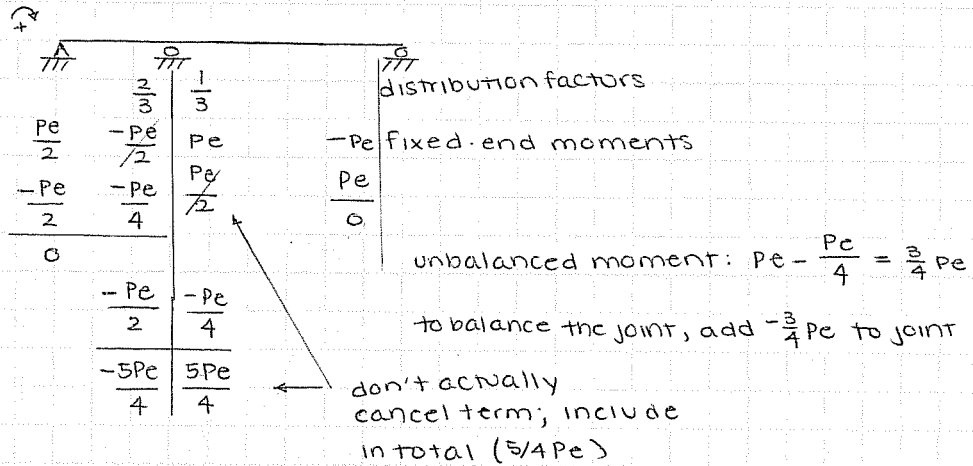 +
2/3 1/3 distribution factors
Pe/2 -Pe/2 Pe -Pe fixed-end moments
-Pe/2 -Pe/4 Pe/2 Pe
0 0
unbalanced moment: Pe - Pe/4 = 3/4 Pe
-Pe/2 -Pe/4
to balance the joint, add -3/4 Pe to joint
-5Pe/4 5Pe/4
don't actually
cancel term; include
in total (5/4 Pe)